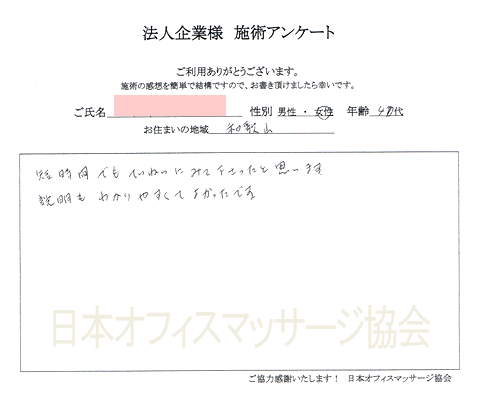 法人企業様 施術アンケート
ご利用ありがとうございます。
施術の感想を簡単で結構ですので、お書き頂けましたら幸いです。
ご氏名 性別 男性 ・ 女性 年齢 40代
お住まいの地域 和歌山
短時間でもていねいにみて下さったと思います
説明もわかりやすくてよかったです
日本オフィスマッサージ協会
ご協力感謝いたします! 日本オフィスマッサージ協会